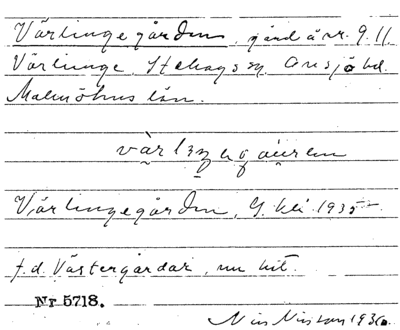 Värlingegården, gård å nr. 9, 11.
Värlinge, Stehags sn. Onsjö hd.
Malmöhus län.
Värlingegården, G. bl. 1935
f.d. Västergårdar, nu hit.
Nr 5718.
Nils Nilsson 1936.